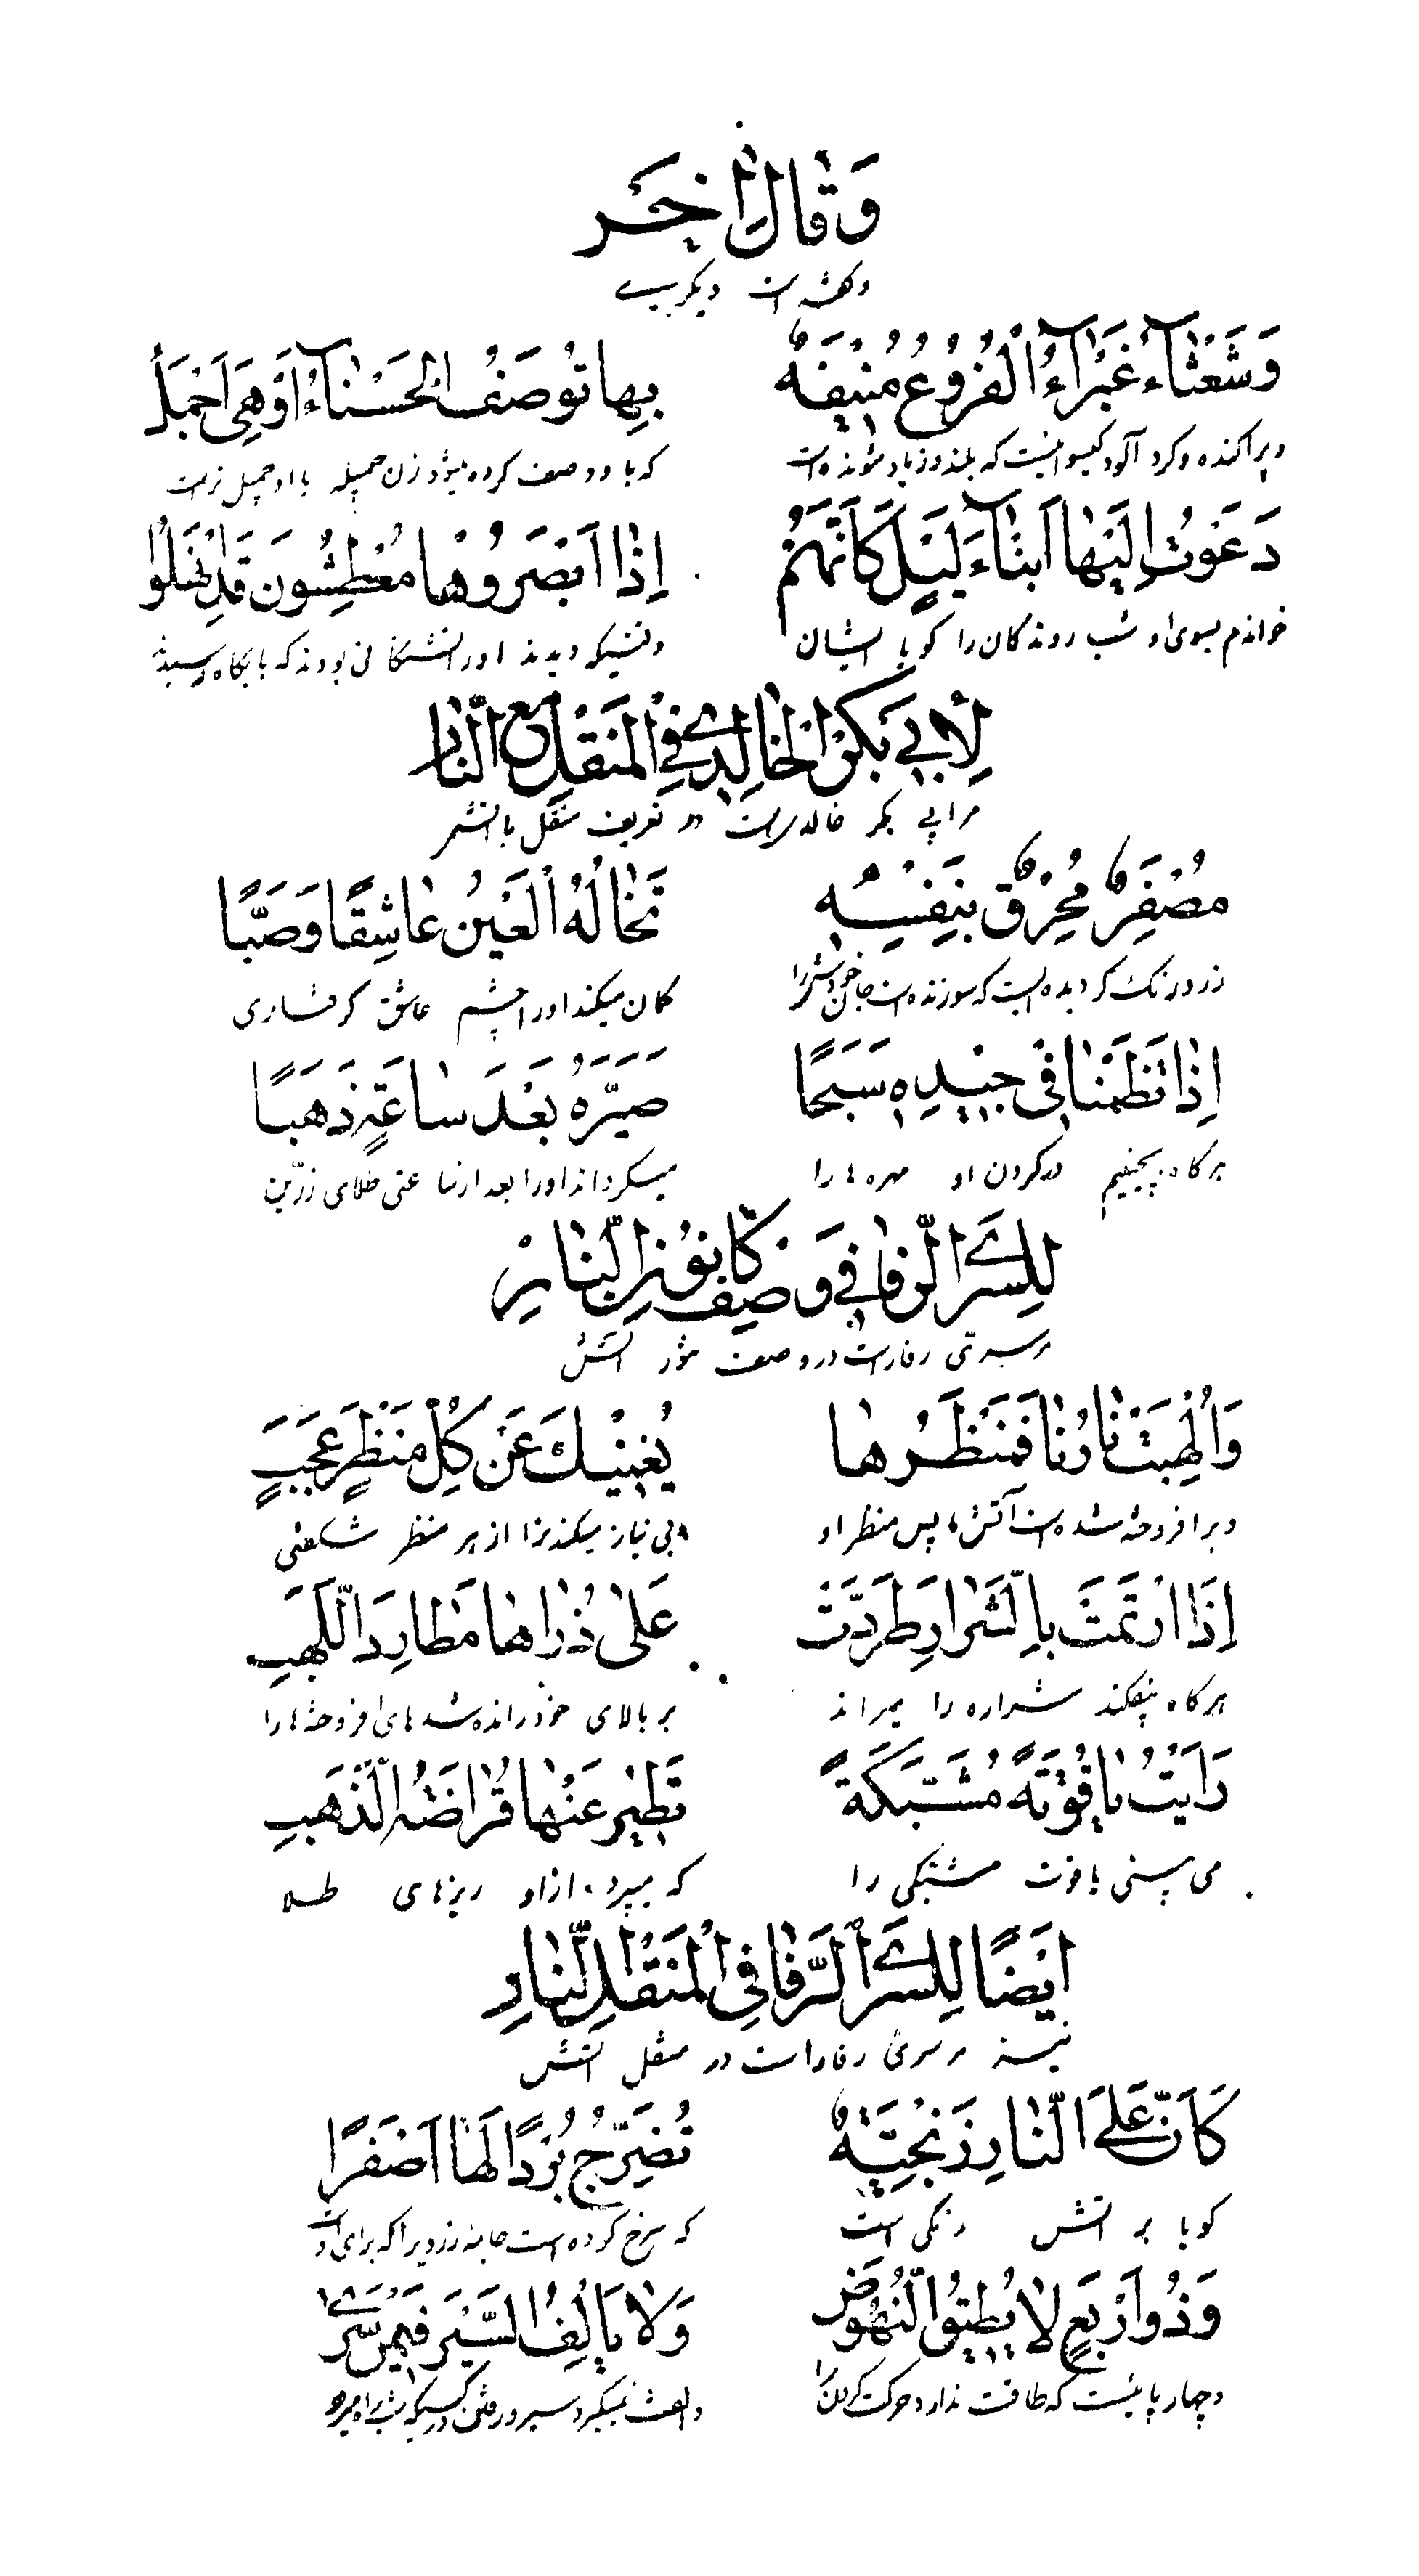 وَقَالَ اٰخَر
و گفته است دیگری
وَشَعْثٰآءُ غَبْرٰآءُ الْفُرُوْعِ مُنِیْفَةٌ بِهٰا تُوْصَفُ الْحَسْنٰآءُ اَوْهِیَ اَجْمَلُ
و پراکنده و کرد آلود کیسوانیست که بلند و زیاد شونده است که با و وصف کرده میشود زن جمیله یا او جمیل تر است
دَعَوْتُ اِلَیْهٰا اَبْنٰآءَ لَیْلٍ کَاَنَّهُمْ اِذٰا اَبْصَرُوْهٰا مُعْطِشُونَ قَدْ نُهِلُوْا
خواندم بسوی او شب روندکان را کویا ایشان وقتیکه دیدند او را تشنکانی بودند که بآبکاه رسیدند
لِاَبِیْ بَکْرٍ الْخٰالِدِیِّ فِی الْمَنْقَلِ مَعَ النّٰارِ
مر ابی بکر خالدیراست در تعریف منقل با آتش
مُصْفَرٌّ مُحْرِقٌ بِنَفْسِهِ تَخٰالُهُ الْعَیْنُ عٰاشِقًا وَصَبًّا
زرد رنک کردیده ایست که سوزنده است جان خویش را کمان میکند او را چشم عاشق کرفتاری
اِذٰا نَظَمْنٰا فِیْ جِیْدِهِ سَبَجًا صَیَّرَهُ بَعْدَ سٰاعَةٍ ذَهَبًا
هرکاه بچینیم در کردن او مهره ها را میکرداند او را بعد از ساعتی طلای زرّین
لِلسَّرِیِّ الرَّفٰا فِیْ وَصْفِ کٰانُوْنِ النّٰارِ
مر سری رفا راست در وصف منقل آتش
وَاُلْهِبَتْ نٰارُنٰا فَمَنْظَرُهٰا یُغْنِیْكَ عَنْ کُلِّ مَنْظَرٍ عَجَبٍ
و برافروخته شده است آتش ما پس منظر او بی نیاز میکند ترا از هر منظر شکفتی
اِذَا ارْتَمَتْ بِالشَّرٰارِ طَرَدَتْ عَلٰی ذُرٰاهٰا مَطٰارِدَ اللَّهَبِ
هرکاه بیفکند شراره را میراند بر بالای خود رانده شد های افروخته ها را
رَاَیْتَ یٰاقُوْتَةً مُشَبَّکَةً تَطِیْرُ عَنْهٰا قُرٰاضَةُ الذَّهَبِ
می بینی یاقوت مشبکی را که میپرد از او ریزهای طلا
اَیْضًا لِلسَّرِیِّ الرَّفٰا فِی الْمَنْقَلِ النّٰارِ
نیز مر سری رفا راست در منقل آتش
کَاَنَّ عَلَی النّٰارِ زَنْجِیَّةٌ تُضَرِّجُ بُرْدًا لَهٰا اَصْفَرًا
کویا بر آتش زنکی است که سرخ کرده است جامه زردیرا که برای اوست
وَذُوْ اَرْبَعٍ لٰا یُطِیْقُ النُّهُوْضَ وَلٰا یَاْلِفُ السَّیْرَ فِیْمَنْ سَرٰی
و چهار پائیست که طاقت ندارد حرکت کردن را و الفت نمیکیرد سیر و رفتن در کسیکه شب راه میرود